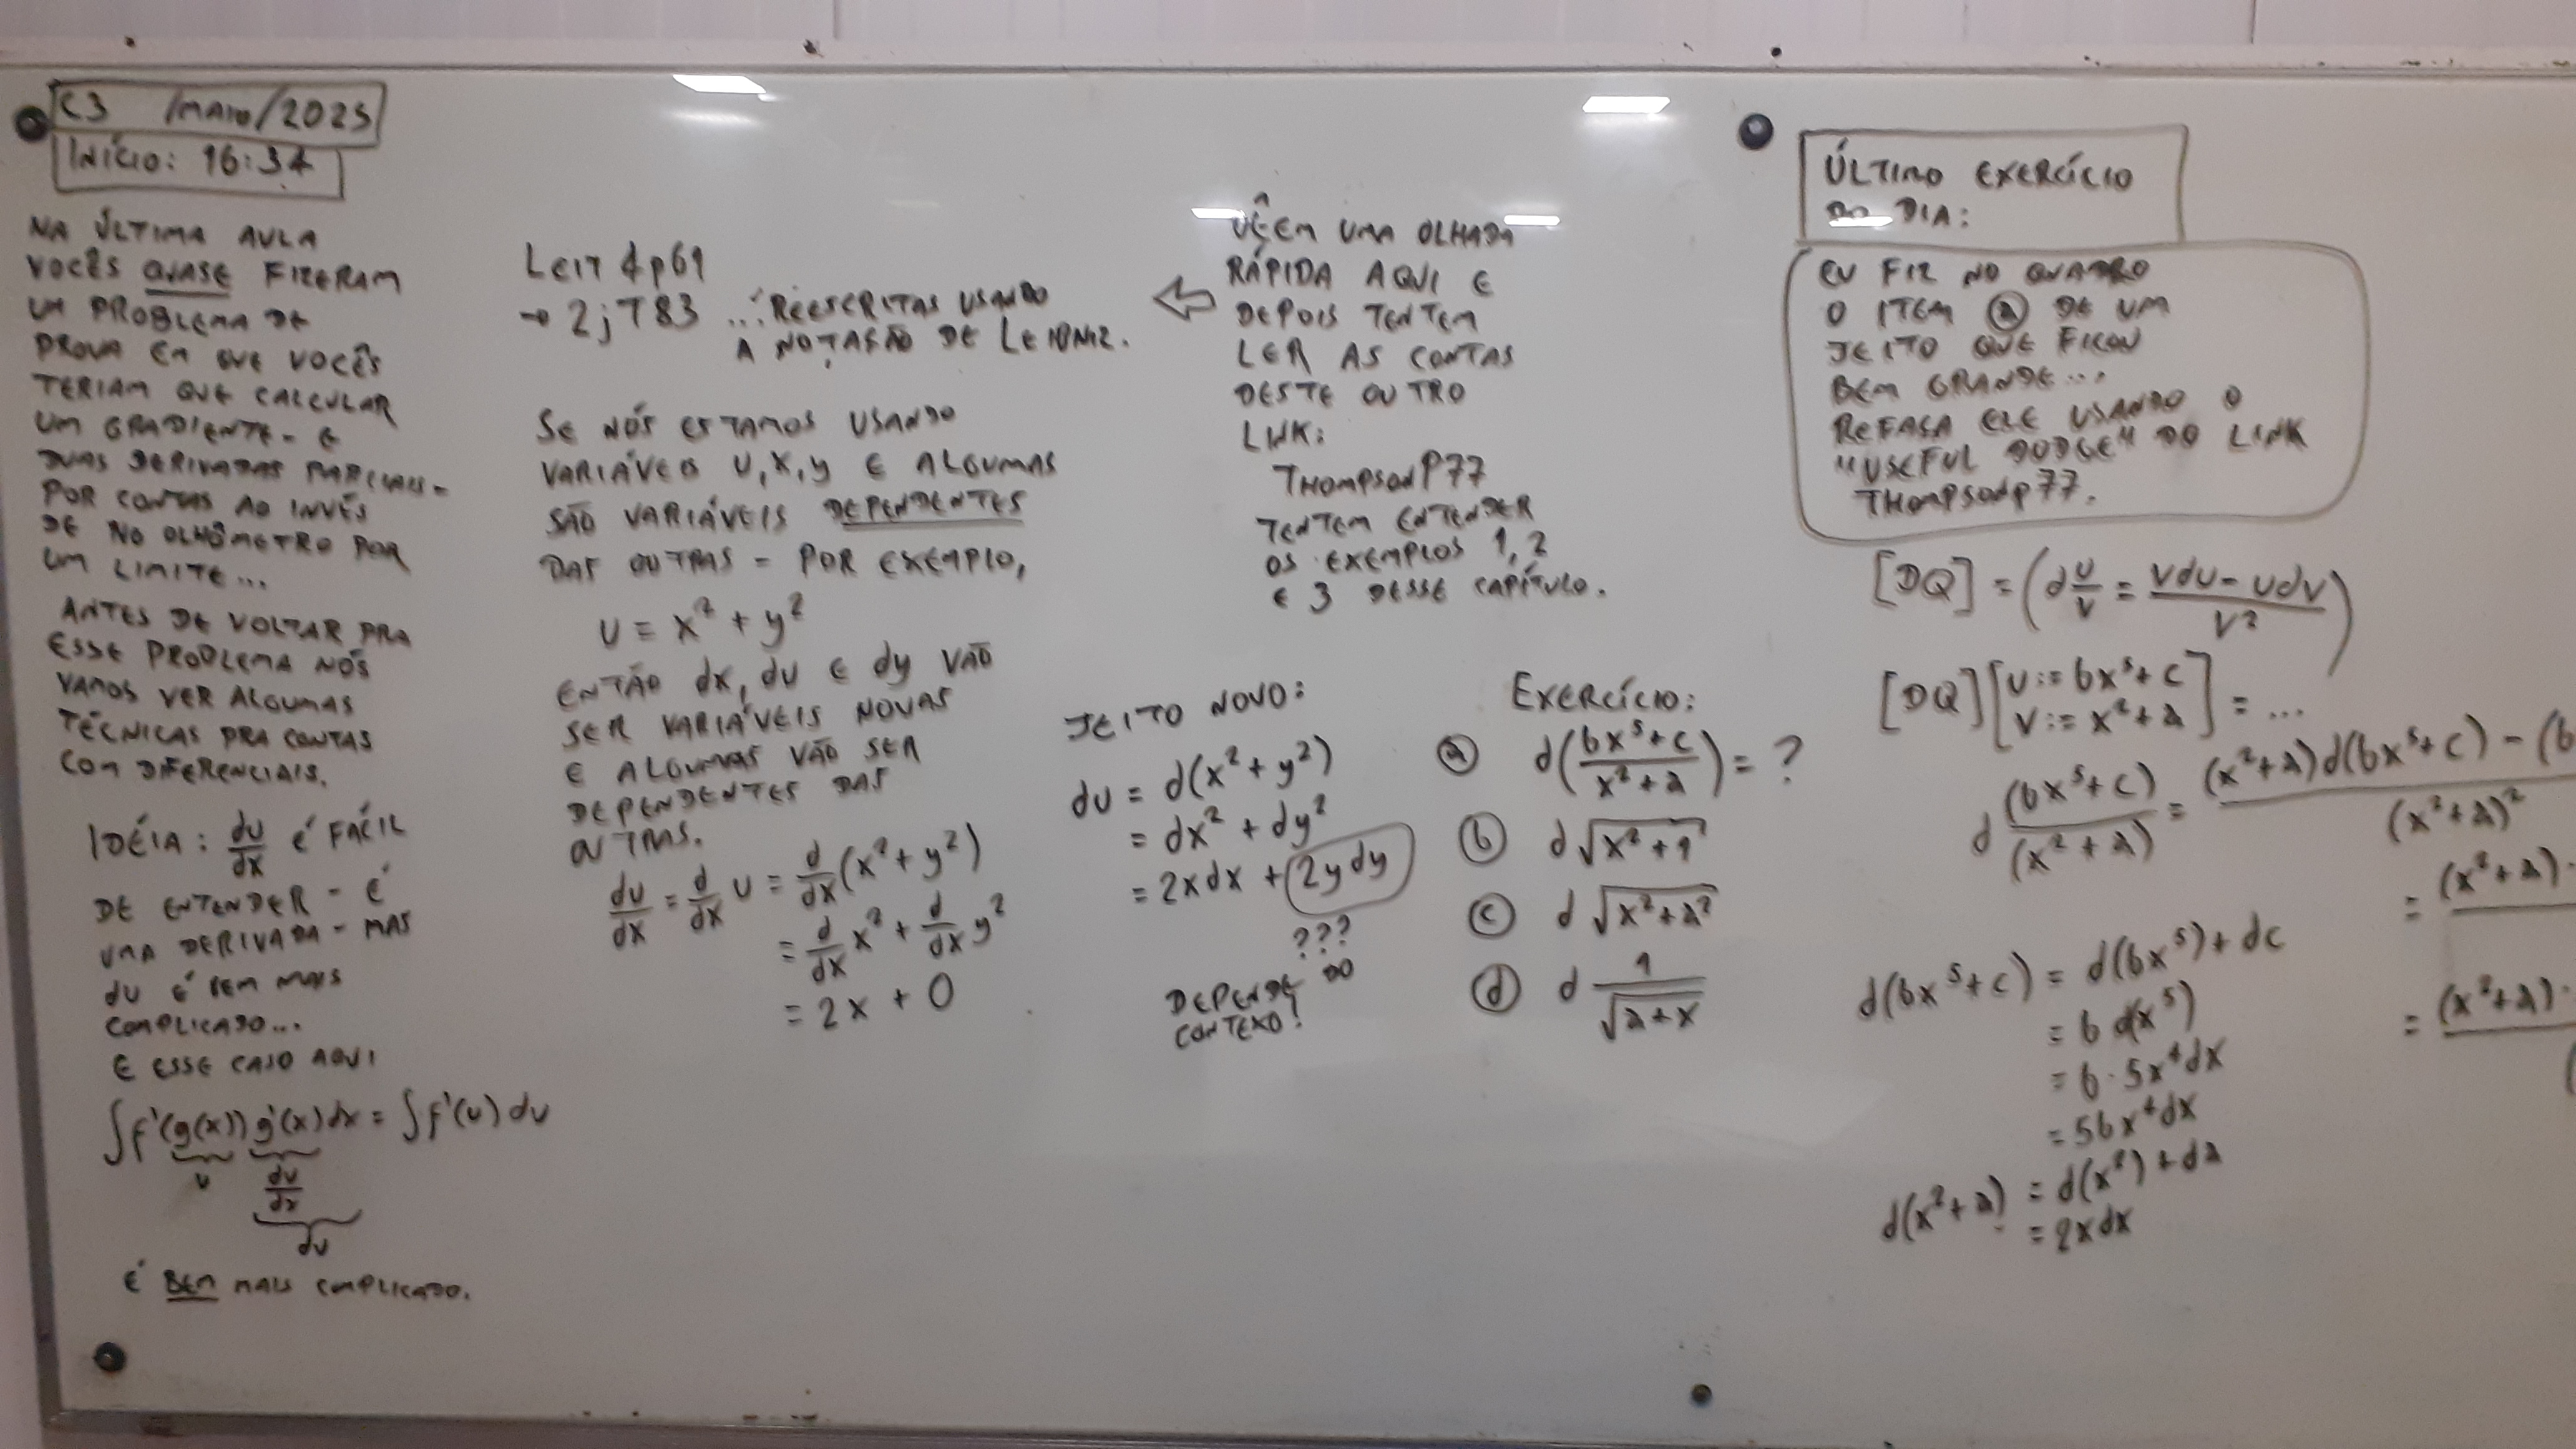 C3 /MAIO/2025
INÍCIO: 16:34
NA ÚLTIMA AULA
VOCÊS QUASE FIZERAM
UM PROBLEMA DE
PROVA EM QUE VOCÊS
TERIAM QUE CALCULAR
UM GRADIENTE - E
DUAS DERIVADAS PARCIAIS -
POR CONTAS AO INVÉS
DE NO OLHÔMETRO POR
UM LIMITE...
ANTES DE VOLTAR PRA
ESSE PROBLEMA NÓS
VAMOS VER ALGUMAS
TÉCNICAS PRA CONTAS
COM DIFERENCIAIS.
IDÉIA: du/dx É FÁCIL
DE ENTENDER - É
UMA DERIVADA - MAS
du É BEM MAIS
COMPLICADO...
E ESSE CASO AQUI
∫f'(g(x)) g'(x) dx = ∫f'(u) du
u
du/dx
du
É BEM MAIS COMPLICADO.
LEIT4p61
→ 2jT83 ...REESCRITAS USANDO
A NOTAÇÃO DE LEIBNIZ.
SE NÓS ESTAMOS USANDO
VARIÁVEIS U, X, Y E ALGUMAS
SÃO VARIÁVEIS DEPENDENTES
DAS OUTRAS - POR EXEMPLO,
u = x² + y²
ENTÃO dx, du E dy VÃO
SER VARIÁVEIS NOVAS
E ALGUMAS VÃO SER
DEPENDENTES DAS
OUTRAS.
du/dx = d/dx u = d/dx (x² + y²)
= d/dx x² + d/dx y²
= 2x + 0
DÊEM UMA OLHADA
RÁPIDA AQUI E
DEPOIS TENTEM
LER AS CONTAS
DESTE OUTRO
LINK:
THOMPSONP77
TENTEM ENTENDER
OS EXEMPLOS 1, 2
E 3 DESSE CAPÍTULO.
JEITO NOVO:
du = d(x² + y²)
= dx² + dy²
= 2x dx + 2y dy
???
DEPENDE DO
CONTEXO!
EXERCÍCIO:
ⓐ d((bx⁵ + c)/(x² + a)) = ?
ⓑ d√(x² + 1)
ⓒ d√(x² + a²)
ⓓ d 1/√(a + x)
ÚLTIMO EXERCÍCIO
DO DIA:
EU FIZ NO QUADRO
O ITEM ⓐ DE UM
JEITO QUE FICOU
BEM GRANDE...
REFAÇA ELE USANDO O
"USEFUL DODGE" DO LINK
THOMPSONP77.
[DQ] = (d u/v = (v du - u dv)/v²)
[DQ][u := bx⁵ + c
v := x² + a] = ...
d (bx⁵ + c)/(x² + a) = (x² + a) d(bx⁵ + c) - (b
(x² + a)²
= (x² + a) ·
= (x² + a) ·
d(bx⁵ + c) = d(bx⁵) + dc
= b d(x⁵)
= b · 5x⁴ dx
= 5bx⁴ dx
d(x² + a) = d(x²) + da
= 2x dx